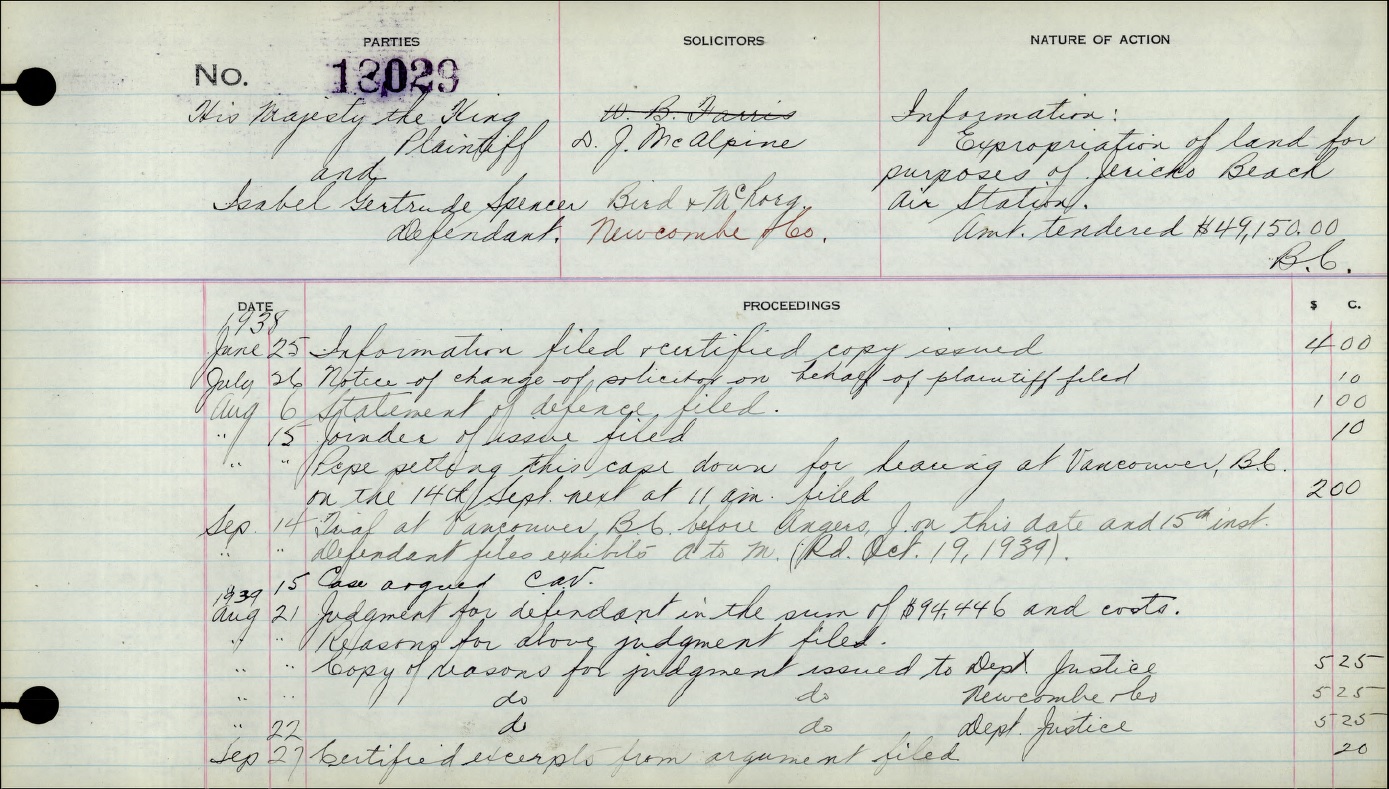 PARTIES SOLICITORS NATURE OF ACTION
No. 18029
His Majesty the King
Plaintiff
and
Isabel Gertrude Spencer
Defendant.
W. B. Farris
D. J. McAlpine
Bird &
Newcombe & Co.
Information:
Expropriation of land for
purposes of Jericho Beach
Air Station.
Amt. tendered $49,150.00
B.C.
DATE PROCEEDINGS $ C.
1938
June 25 Information filed & certified copy issued 4 00
July 26 Notice of change of solicitor on behalf of plaintiff filed 10
Aug 6 Statement of defence filed. 1 00
" 15 Joinder of issue filed 10
" " Pcpe setting this case down for hearing at Vancouver, B.C.
on the 14th Sept. next at 11 am. filed 2 00
Sep. 14 Trial at Vancouver, B.C. before Angers, J. on this date and 15th inst.
" " Defendant files exhibits A to M. (Rd. Oct. 19, 1939).
15 Case argued C.A.V.
1939
Aug 21 Judgment for defendant in the sum of $94,446 and costs.
" " Reasons for above judgment filed.
" " Copy of reasons for judgment issued to Dept Justice 5 25
" " do do Newcombe & Co 5 25
" 22 do do Dept. Justice 5 25
Sep 27 Certified excerpts from argument filed 20